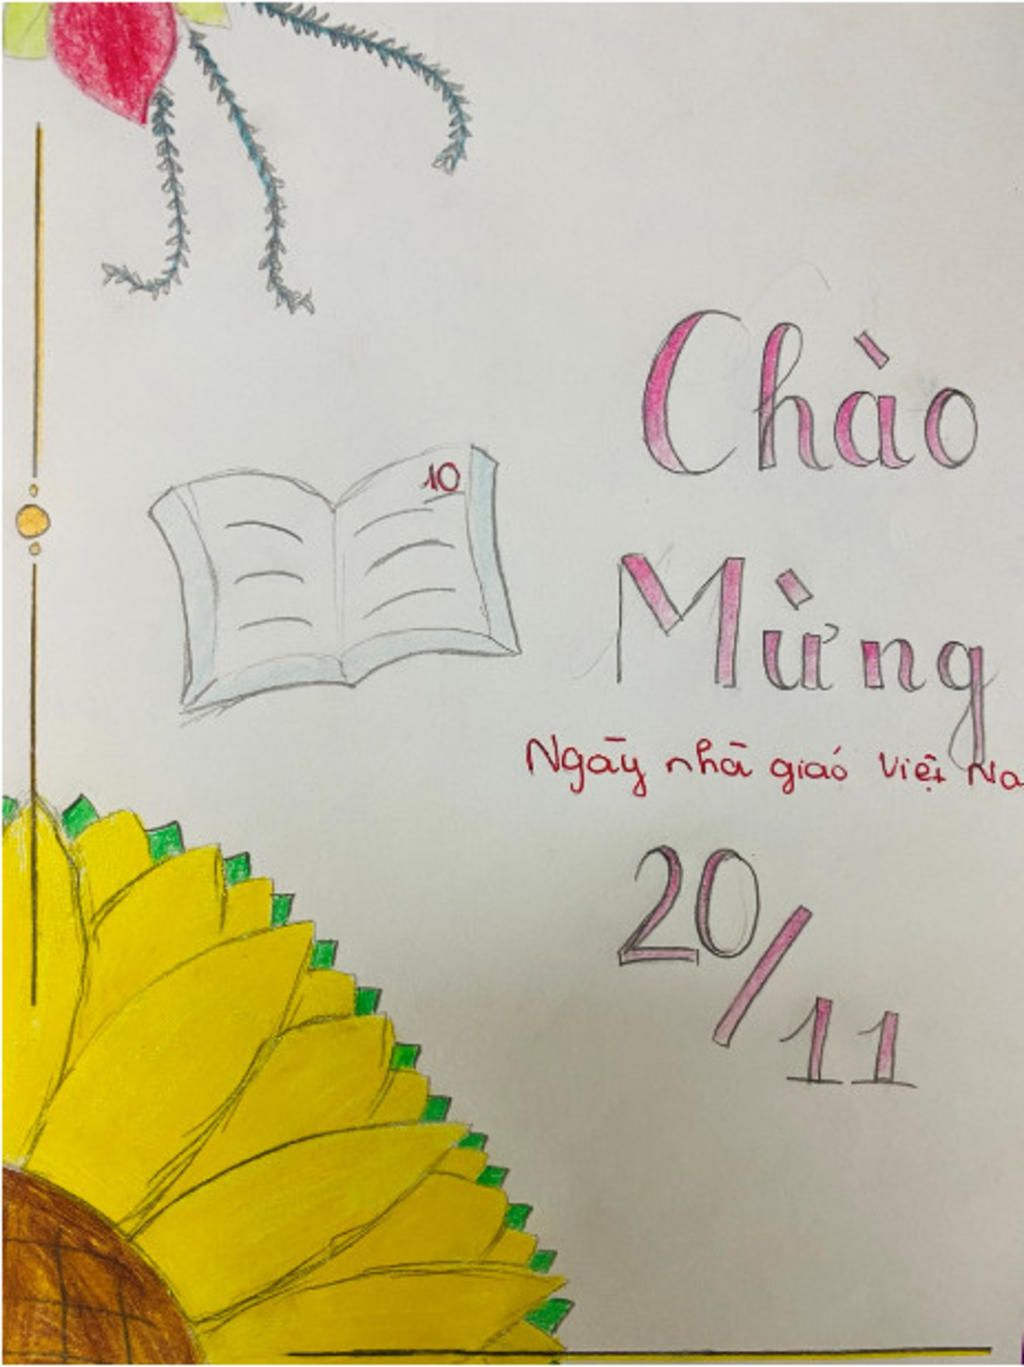 10
Chào
Mừng
Ngày nhà giáo Việt Na
20/11